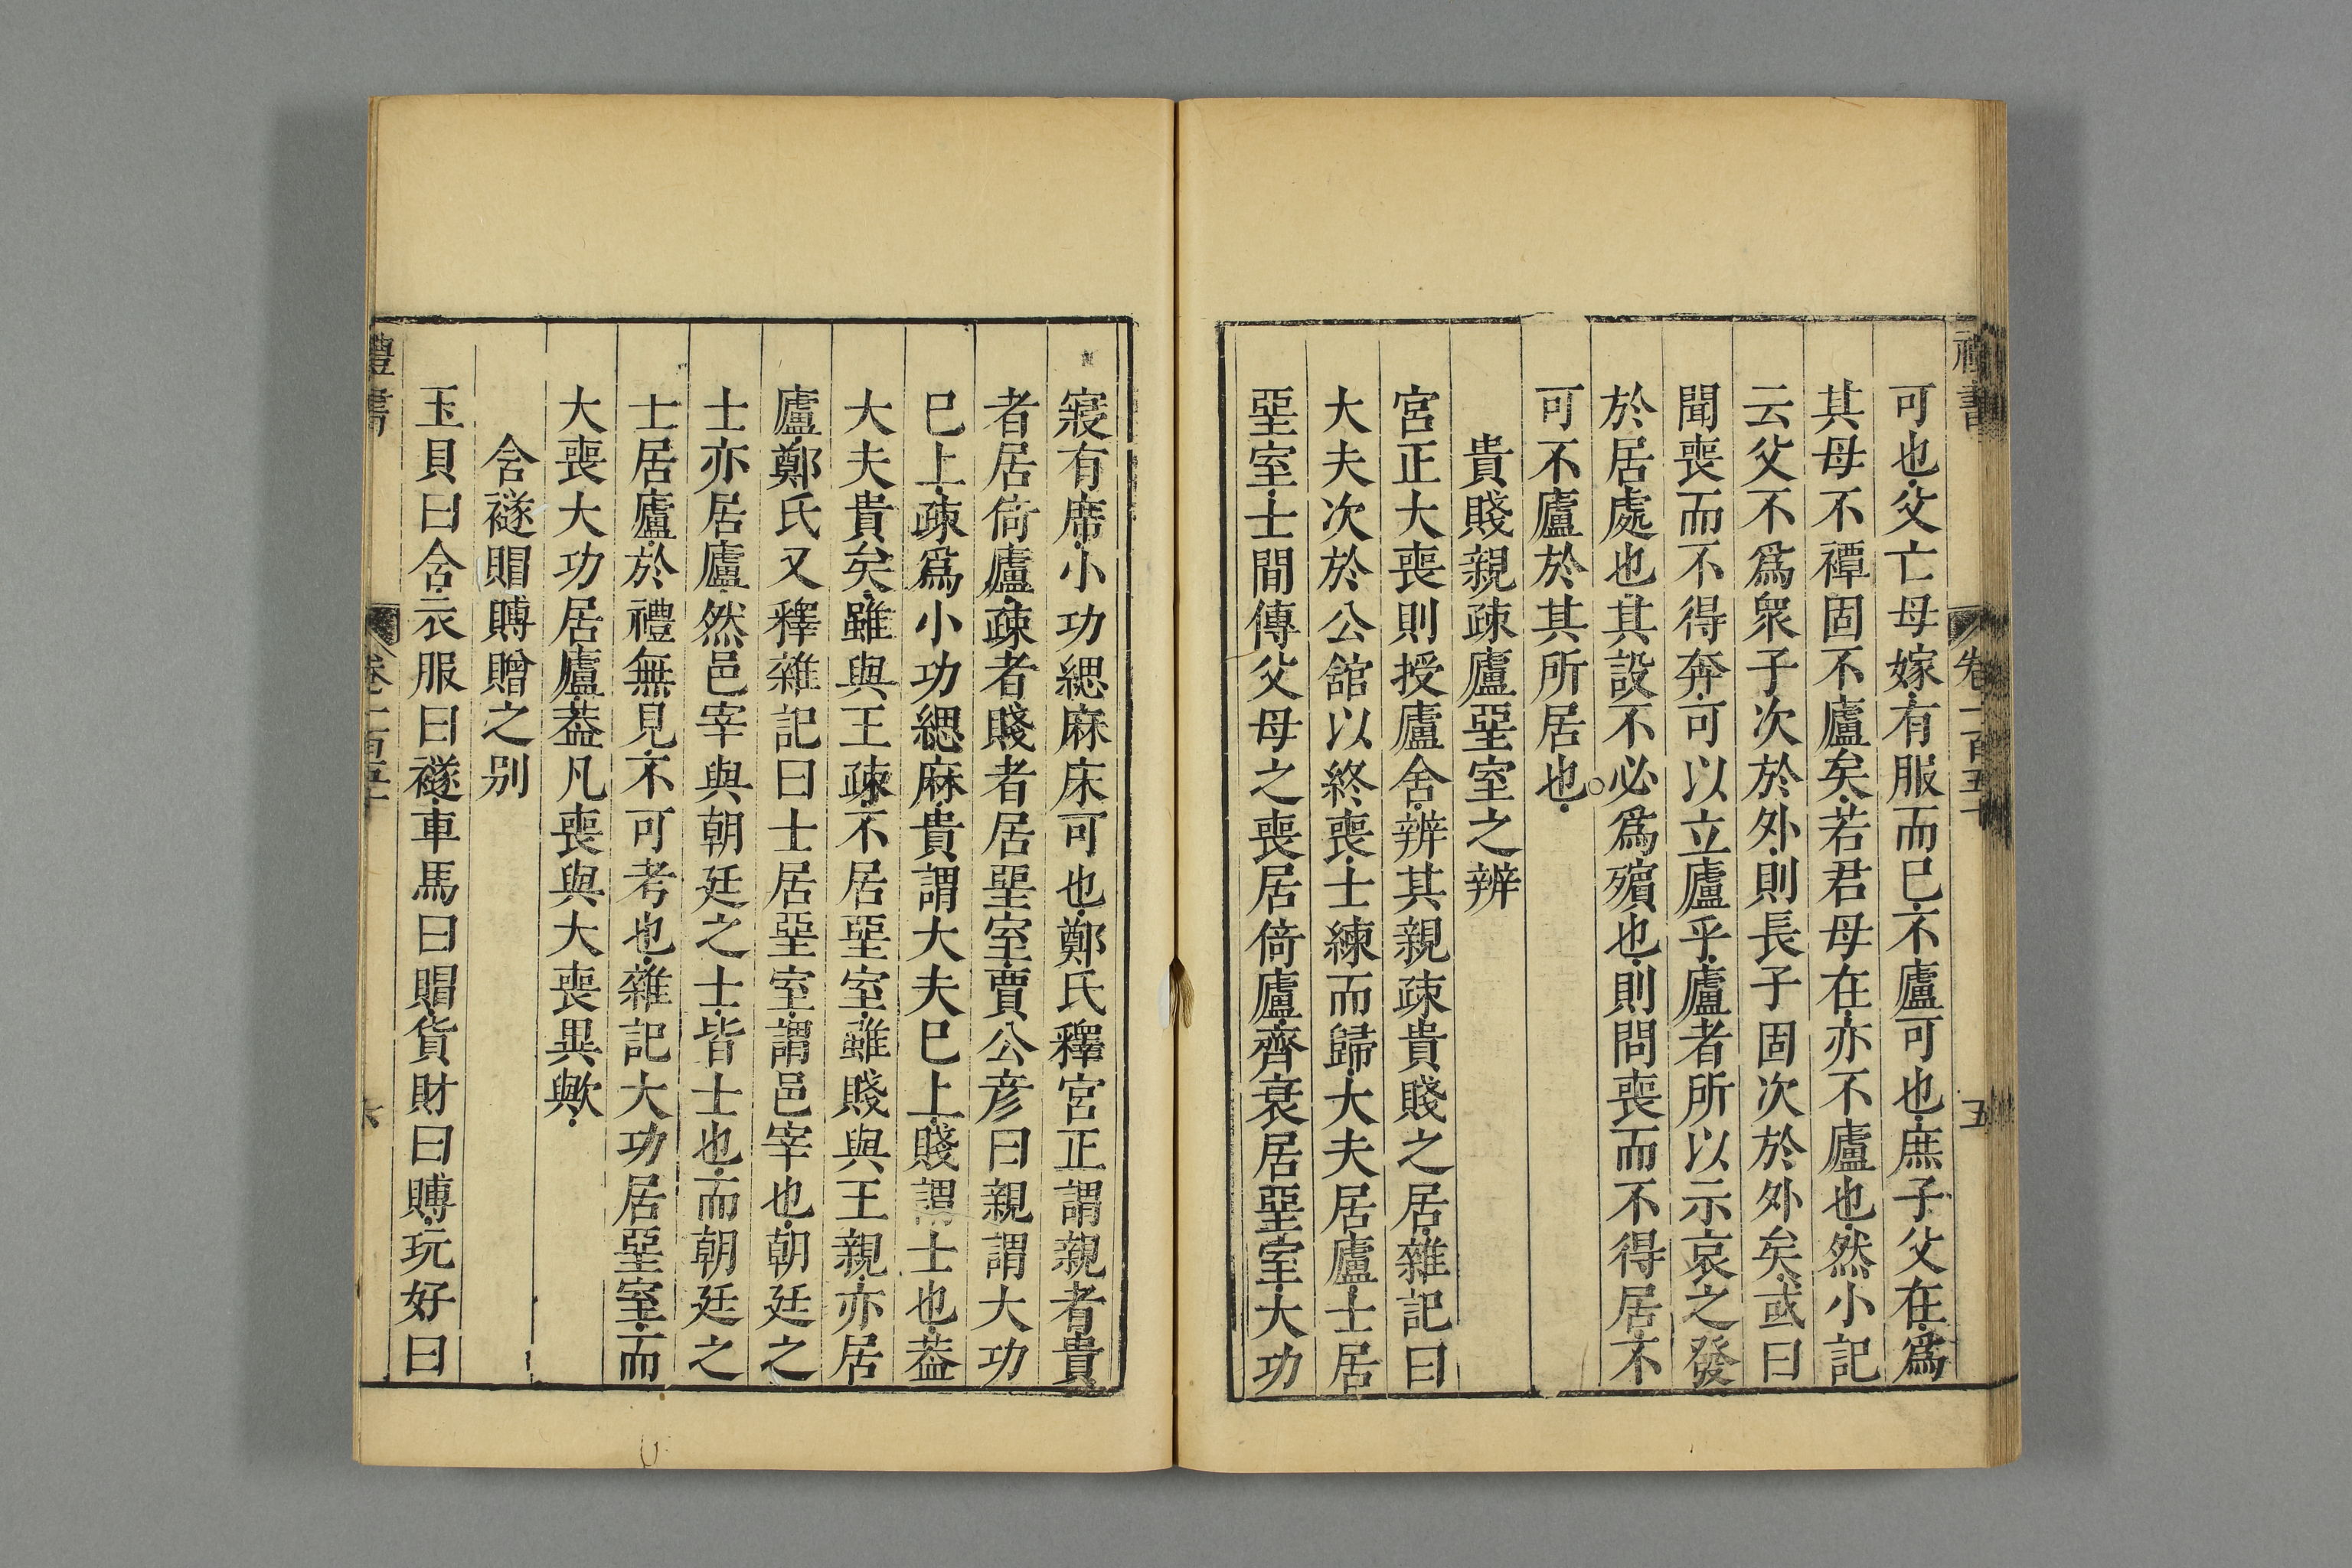 禮書
卷一百五十
五
可也父亡母嫁有服而已不廬可也庶子父在爲
其母不禫固不廬矣若君母在亦不廬也然小記
云父不爲衆子次於外則長子固次於外矣或曰
聞喪而不得奔可以立廬乎廬者所以示哀之發
於居處也其設不必爲殯也則問喪而不得居不
可不廬於其所居也
貴賤親疎廬堊室之辨
宮正大喪則授廬舍辨其親疎貴賤之居雜記曰
大夫次於公館以終喪士練而歸大夫居廬士居
堊室士間傳父母之喪居倚廬齊衰居堊室大功
寢有席小功緦麻床可也鄭氏釋宮正謂親者貴
者居倚廬疎者賤者居堊室賈公彦曰親謂大功
巳上疎爲小功緦麻貴謂大夫巳上賤謂士也葢
大夫貴矣雖與王疎不居堊室雖賤與王親亦居
廬鄭氏又釋雜記曰士居堊室謂邑宰也朝廷之
士亦居廬然邑宰與朝廷之士皆士也而朝廷之
士居廬於禮無見不可考也雜記大功居堊室而
大喪大功居廬葢凡喪與大喪異歟
含襚賵賻贈之别
玉貝曰含衣服曰襚車馬曰賵貨財曰賻玩好曰
禮書
卷一百五十
六